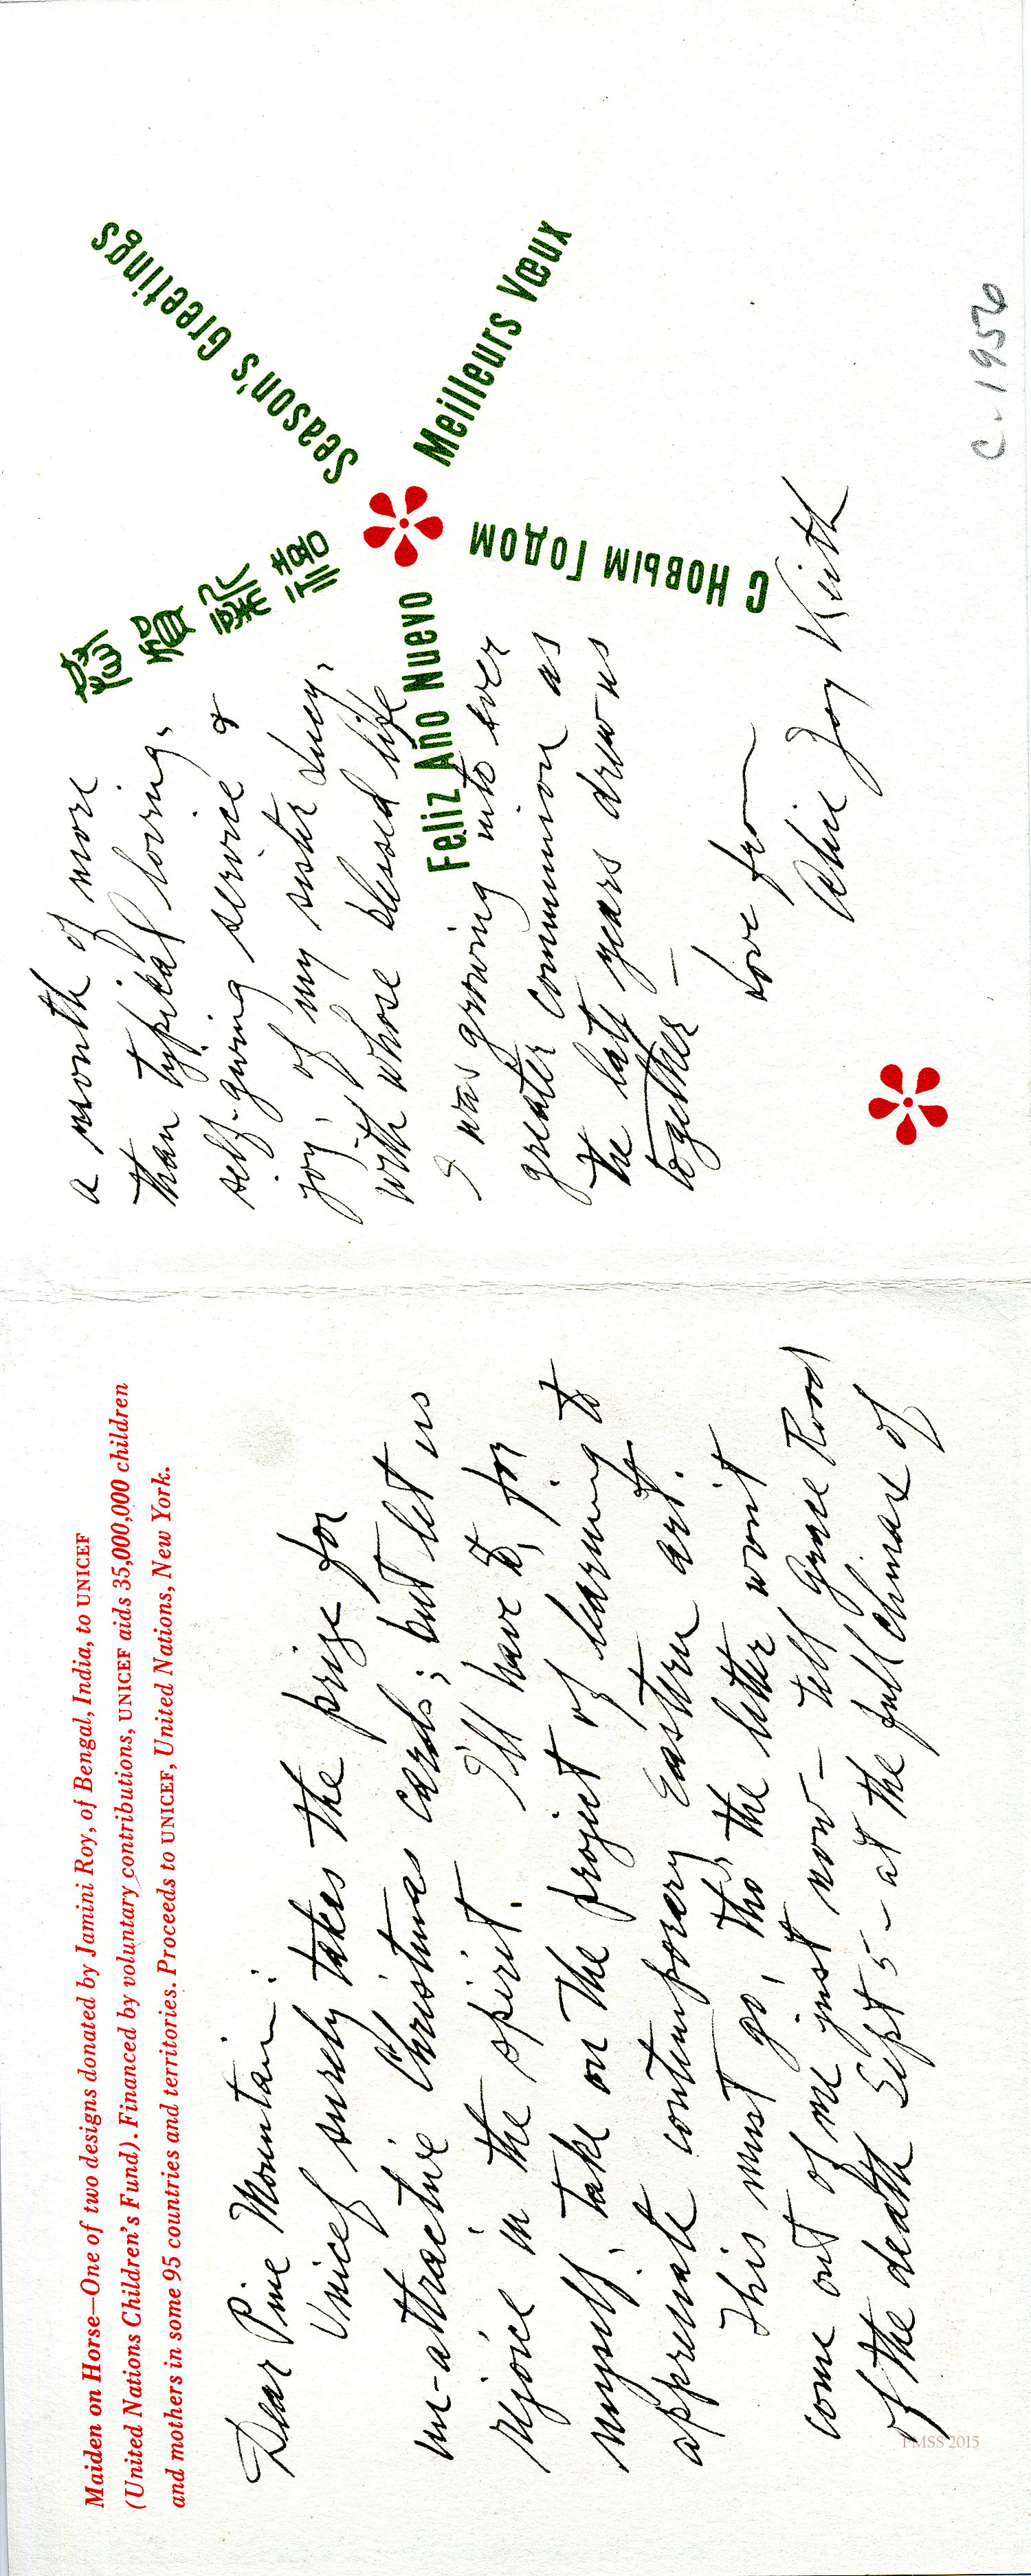 Maiden on Horse—One of two designs donated by Jamini Roy, of Bengal, India, to UNICEF
(United Nations Children's Fund). Financed by voluntary contributions, UNICEF aids 35,000,000 children
and mothers in some 95 countries and territories. Proceeds to UNICEF, United Nations, New York.
Dear Pine Mountain:
Unicef surely takes the prize for
un-attractive Christmas cards; but let us
rejoice in the spirit. I'll have to, for
myself, take on the project of learning to
appreciate contemporary Eastern art.
This must go, tho' the letter won't
come out of me just now – tell Grace Rood
of the death Sept 5 – at the full climax of
PMSS 2015
a month of more
than typical loving,
self-giving service &
joy, of my sister Lucy,
with whose blessed life
I was growing into ever
greater communion as
the late years drew us
together –
love from
Alice Joy Keith
恭賀新禧
Season's Greetings
Meilleurs Vœux
С Новым Годом
Feliz Año Nuevo
c. 1956